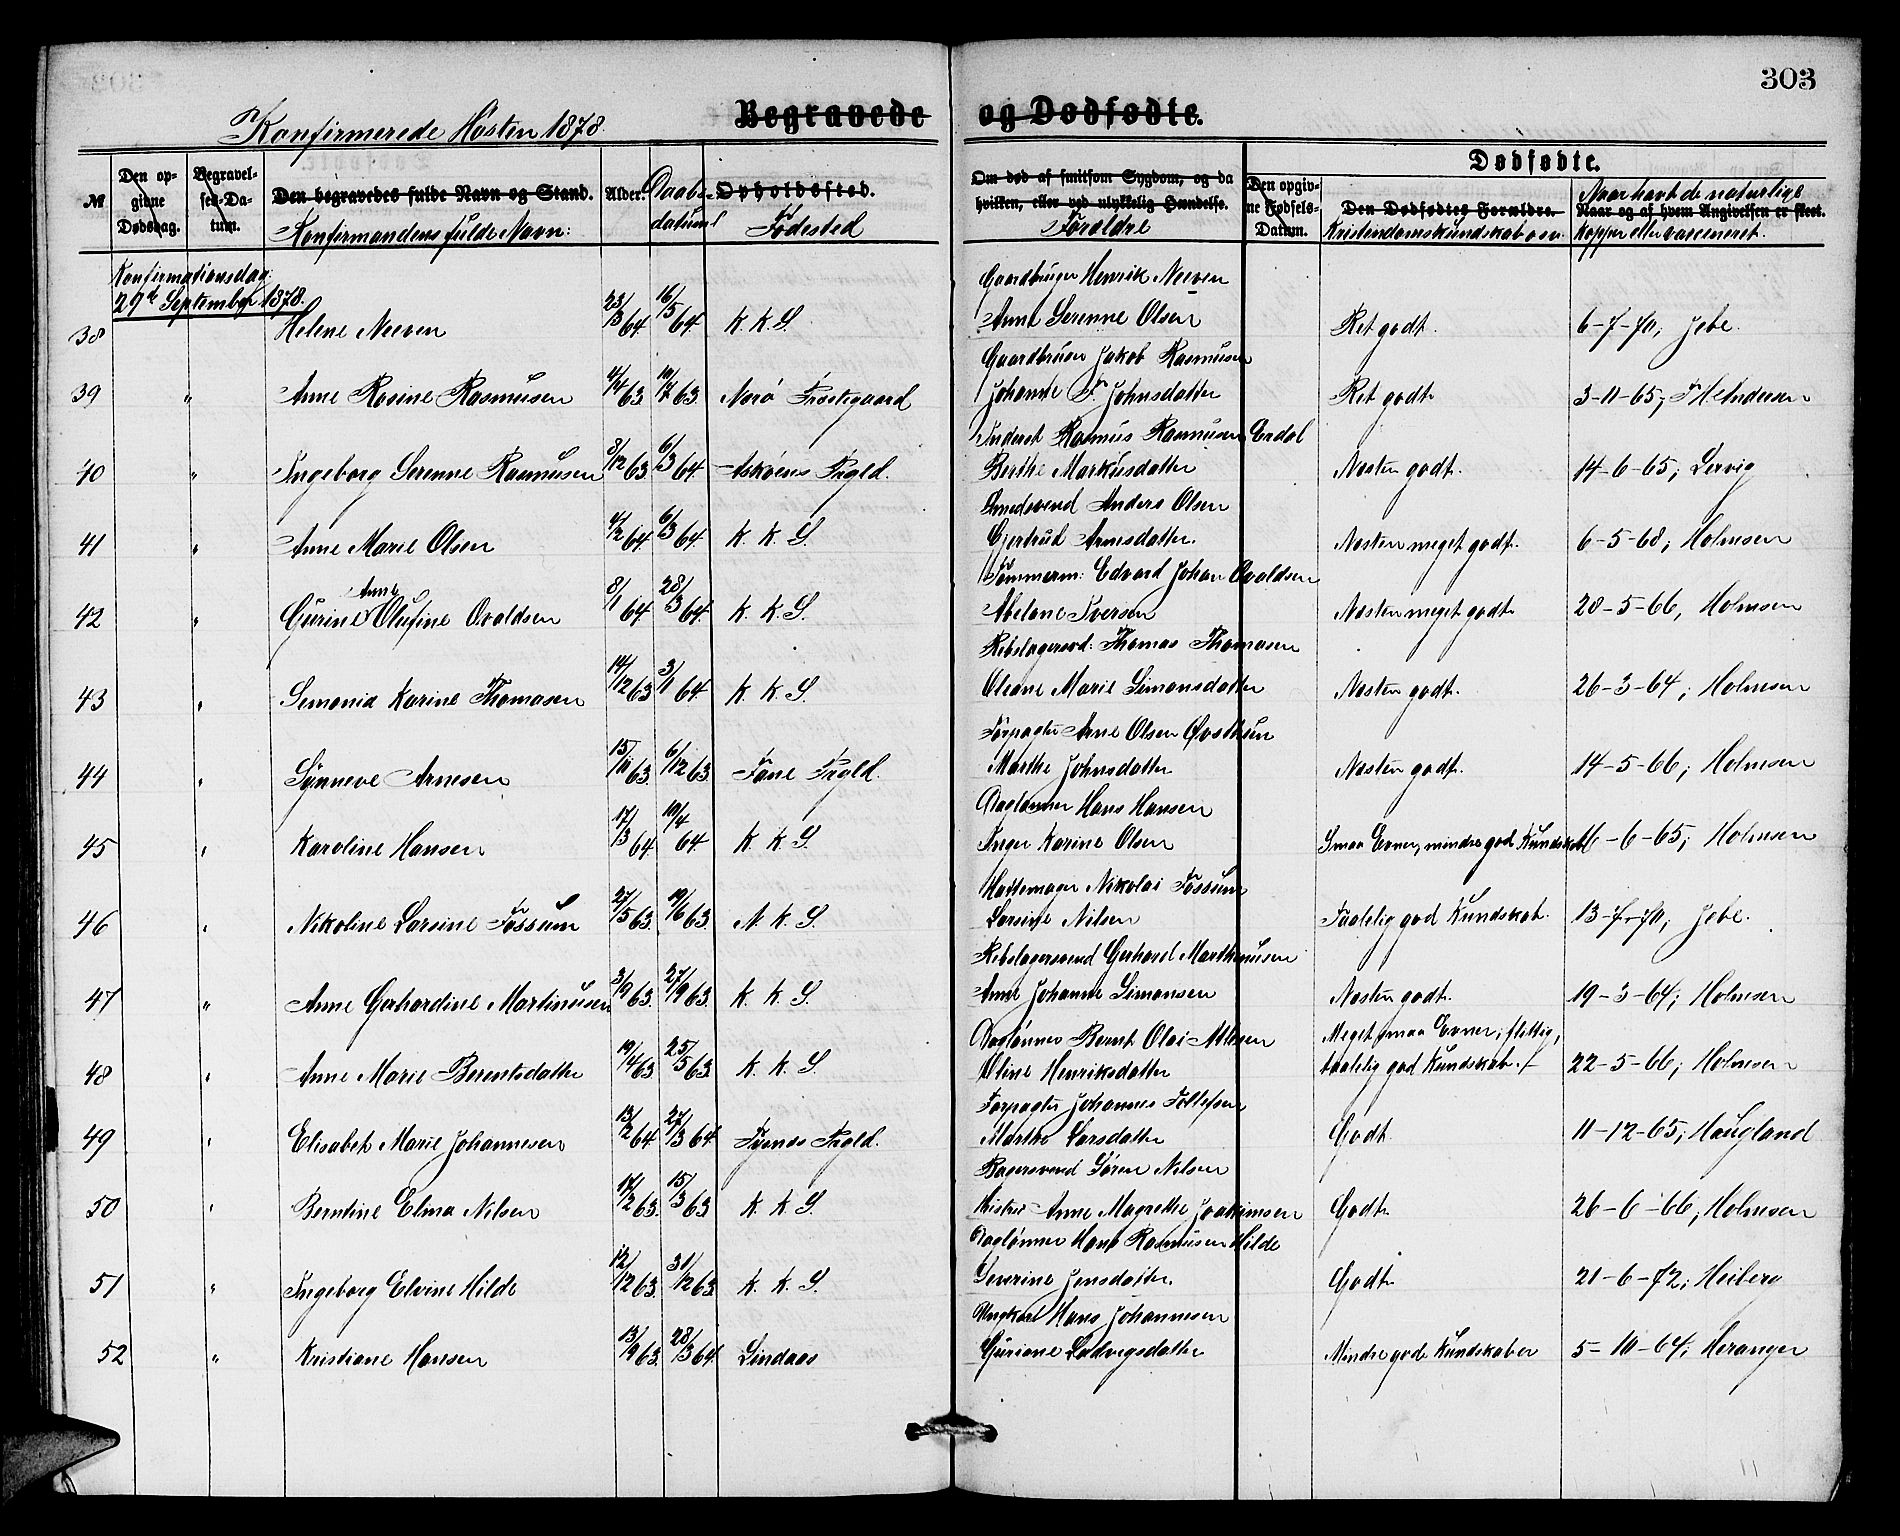 303
Konfirmerede Høsten 1878.
Begravede og Dødfødte.
№ Den opgivne Dødsdag. Begravelses-Datum. Den begravedes fulde Navn og Stand. Alder. Daabsdatum Opholdssted. Om død af smitsom Sygdom, og da hvilken, eller ved ulykkelig Hændelse. Den opgivne Fødsels-Datum. Dødfødte. Den Dødfødtes Forældre. Naar og af hvem Angivelsen er skeet.
Konfirmandens fulde Navn: Fødested Forældre Kristendomskundskab osv. Naar havt de naturlige Kopper eller vaccineret.
Konfirmationsdag:
29de September 1878.
Gaardbruger Henrik Neeven
38 Helene Neeven 23/3 64 16/5 64 K. K. S. Anne Serenne Olsen Ret godt. 6-7-70; Jebe.
Gaardbruger Jakob Rasmusen
39 " Anne Rosine Rasmusen 4/4 63 10/7 63. Norø Præstegaard Johanne F. Johnsdatter Ret godt 3-11-65; Andersen
Inderst Rasmus Rasmusen Erdal
40 " Ingeborg Serenne Rasmusen 3/12 63. 6/3 64. Askøens Prgld. Berthe Markusdatter Næsten godt. 14-6-65; Lervig
Smedsvend Anders Olsen
41 " Anne Marie Olsen 4/2 64. 6/3 64. K. K. S. Gjertrud Arnesdatter. Næsten meget godt. 6-5-68; Holmsen
Tømmerm: Edvard Johan Ovaldsen
42 " Gurine Anne Olufine Ovaldsen 8/1 64. 28/3 64. K. K. S. Abelone Iversen Næsten meget godt 28-5-66, Holmsen
Rebslagersvd: Thomas Thomasen
43 " Simonia Karine Thomasen 14/12 63 3/1 64. K. K. S. Oleane Marie Simonsdatter Næsten godt. 26-3-64; Holmsen
Forpagter Arne Olsen Øvsthun
44 " Synneve Arnesen 15/10 63. 6/12 63. Fane Prgld. Marthe Johnsdatter Næsten godt. 14-5-66; Holmsen
Daglønner Hans Hansen
45 " Karoline Hansen 17/3 64. 10/4 64. K. K. S. Inger Karine Olsen Smaa Evner, mindre god Kundskab 16-6-65; Holmsen
Hattemager Nikolai Fossum
46 " Nikoline Larsine Fossum 27/5 63. 19/6 63. N. K. S. Larsine Nilsen Taalelig god Kundskab. 13-7-70; Jebe.
Rebslagersvend Gerhard Marthinusen
47 " Anne Gerhardine Martinusen 3/9 63. 27/9 63. K. K. S. Anne Johanne Simonsen Næsten godt. 19-3-64; Holmsen
Daglønner Bernt Olai Meget smaa Evner; flittig,
48 " Anne Marie Berentsdatter 19/4 63. 25/5 63. K. K. S. Oline Henriksdatter taalelig god Kundskab. 22-5-66; Holmsen
Forpagter Johannes Tollefsen
49 " Elisabet Marie Johannesen 13/2 64 27/3 64. Tysnæs Prgld. Marthe Larsdatter Godt. 11-12-65; Haugland
Bagersvend Søren Nilsen
50 " Berntine Elina Nilsen 14/2 63. 15/3 63 K. K. S. Anne Magrethe Joakimsen Godt 26-6-66, Holmsen
Daglønner Hans Rasmusen Hilde
51 " Ingeborg Elvine Hilde 12/12 63. 31/12 63 K. K. S. Severine Jensdatter. Godt 21-6-72; Heiberg
Ungkarl Hans Johannesen
52 " Kristiane Hansen 13/9 63. 28/3 64. Lindaas Guriane Ludvigsdatter Mindre gode Kundskaber 5-10-64; Heranger